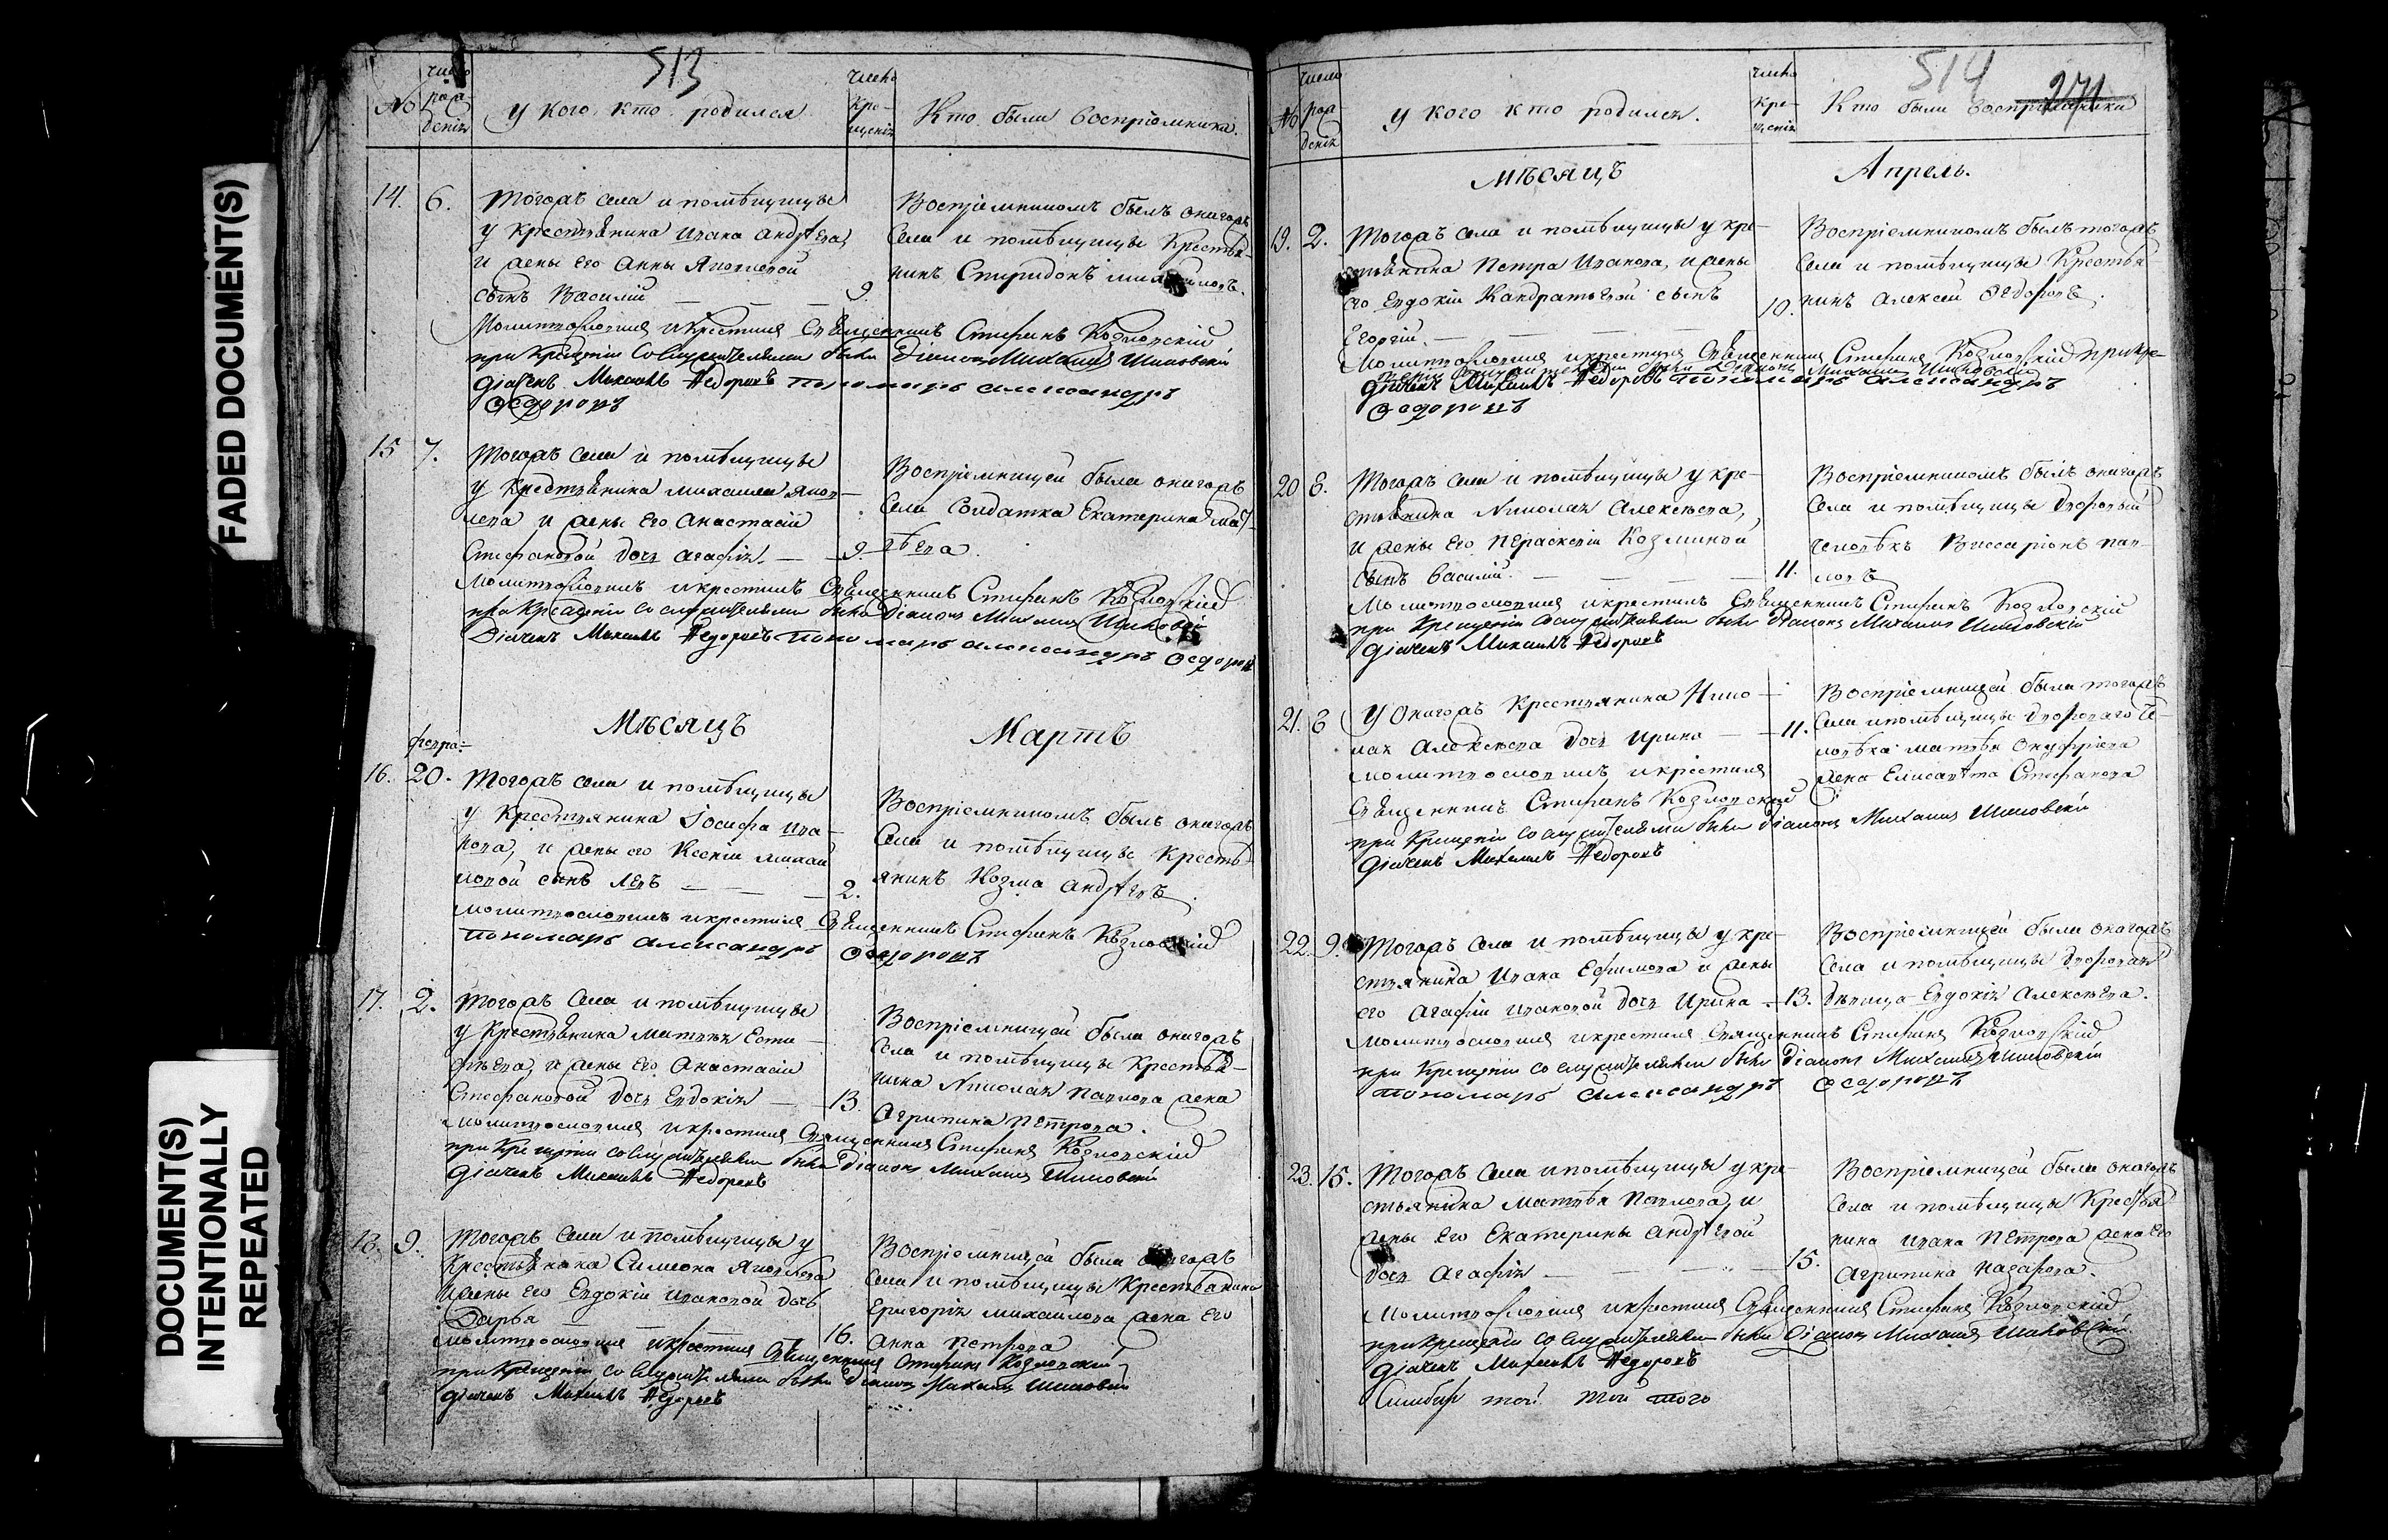 FADED DOCUMENT(S)
DOCUMENT(S)
INTENTIONALLY
REPEATED
513
№
число
рож-
денія
у кого кто родился
число
кре-
щенія
Кто были воспріемники.
14. 6. Тогожъ села и помѣщицы
у крестьянина Ивана Андреева,
и жены его Анны Яковлевой
сынъ Василій 9.
Воспріемникомъ былъ онагожъ
села и помѣщицы крестья-
нинъ Спиридонъ
Молитвословилъ и крестилъ Священникъ Стефанъ Козловскій
при крещеніи со служителями были Діаконъ Михаилъ
дьячекъ Михаилъ Федоровъ пономарь Александръ
Федоровъ
15 7. Тогожъ села и помѣщицы
у крестьянина Михаила Яков-
лева и жены его Анастасіи
Стефановой дочь Агафія. 9.
Воспріемницей была онагожъ
села солдатка Екатерина Мат-
вѣева.
Молитвословилъ и крестилъ Священникъ Стефанъ Козловскій
при крещеніи со служителями были Діаконъ Михаилъ
Дьячекъ Михаилъ Федоровъ пономарь Александръ Федоровъ
Мѣсяцъ Мартъ
февра:
16. 20. Тогожъ села и помѣщицы
у крестьянина Іосифа Ива-
нова, и жены его Ксеніи Михай
ловой сынъ Левъ 2.
Воспріемникомъ былъ онагожъ
села и помѣщицы кресть-
янинъ Козма Андреевъ.
Молитвословилъ и крестилъ Священникъ Стефанъ Козловскій
пономарь Александръ Федоровъ
17. 2. Тогожъ села и помѣщицы
у крестьянина Матвѣя Ести-
фѣева, и жены его Анастасіи
Стефановой дочь Евдокія 13.
Воспріемницей была онагожъ
села и помѣщицы крестья-
нина Николая Павлова жена
Агрипина Петрова.
Молитвословилъ и крестилъ Священникъ Стефанъ Козловскій
при крещеніи со служителями были Діаконъ Михаилъ
дьячекъ Михаилъ Федоровъ
18. 9. Тогожъ села и помѣщицы у
крестьянина Симиона Яковлева
и жены его Евдокіи Ивановой дочь
Дарья 16.
Воспріемницей была онагожъ
села и помѣщицы крестьянина
Григорія Михайлова жена его
Анна Петрова
Молитвословилъ и крестилъ Священникъ Стефанъ Козловскій
при крещеніи со служителями были Діаконъ Михаилъ
дьячекъ Михаилъ Федоровъ
514
271
№
число
рож-
денія
у кого кто родился.
число
кре-
щенія
Кто были воспріемники
Мѣсяцъ Апрель.
19. 2. Тогожъ села и помѣщицы у кре-
стьянина Петра Иванова, и жены
его Евдокіи Кандратьевой сынъ
Егоргій. 10.
Воспріемникомъ былъ тогожъ
села и помѣщицы крестья
нинъ Алексей Федоровъ.
Молитвословилъ и крестилъ Священникъ Стефанъ Козловскій при кре-
щеніи со служителями были Діаконъ Михаилъ
дьячекъ Михаилъ Федоровъ пономарь Александръ
Федоровъ
20 8. Тогожъ села и помѣщицы у кре-
стьянина Николая Алексѣева,
и жены его Пераскевіи Козминой
сынъ Василій. 11.
Воспріемникомъ былъ онагожъ
села и помѣщицы дворовый
человѣкъ Виссаріонъ Пав-
ловъ
Молитвословилъ и крестилъ Священникъ Стефанъ Козловскій
при крещеніи со служителями были Діаконъ Михаилъ
дьячекъ Михаилъ Федоровъ
21. 8 У онагожъ крестьянина Нико-
лая Алексѣева дочь Ирина 11.
Воспріемницей была тогожъ
села и помѣщицы двороваго че-
ловѣка Матвѣя Онуфріева
жена Елисавѣта Стефанова
Молитвословилъ и крестилъ
Священникъ Стефанъ Козловскій
при крещеніи со служителями были Діаконъ Михаилъ
дьячекъ Михаилъ Федоровъ
22. 9. Тогожъ села и помѣщицы у кре-
стьянина Ивана Ефимова и жены
его Агафіи Ивановой дочь Ирина 13.
Воспріемницей была онагожъ
села и помѣщицы дворовая
дѣвица Евдокія Алексѣева.
Молитвословилъ и крестилъ Священникъ Стефанъ Козловскій
при крещеніи со служителями были Діаконъ Михаилъ
пономарь Александръ Федоровъ
23. 15. Тогожъ села и помѣщицы у кре-
стьянина Матвѣя Павлова, и
жены его Екатерины Андреевой
дочь Агафія 15.
Воспріемницей была онагожъ
села и помѣщицы крестья
нина Ивана Петрова жена его
Агрипина Назарова.
Молитвословилъ и крестилъ Священникъ Стефанъ Козловскій
при крещеніи со служителями были Діаконъ Михаилъ
дьячекъ Михаилъ Федоровъ